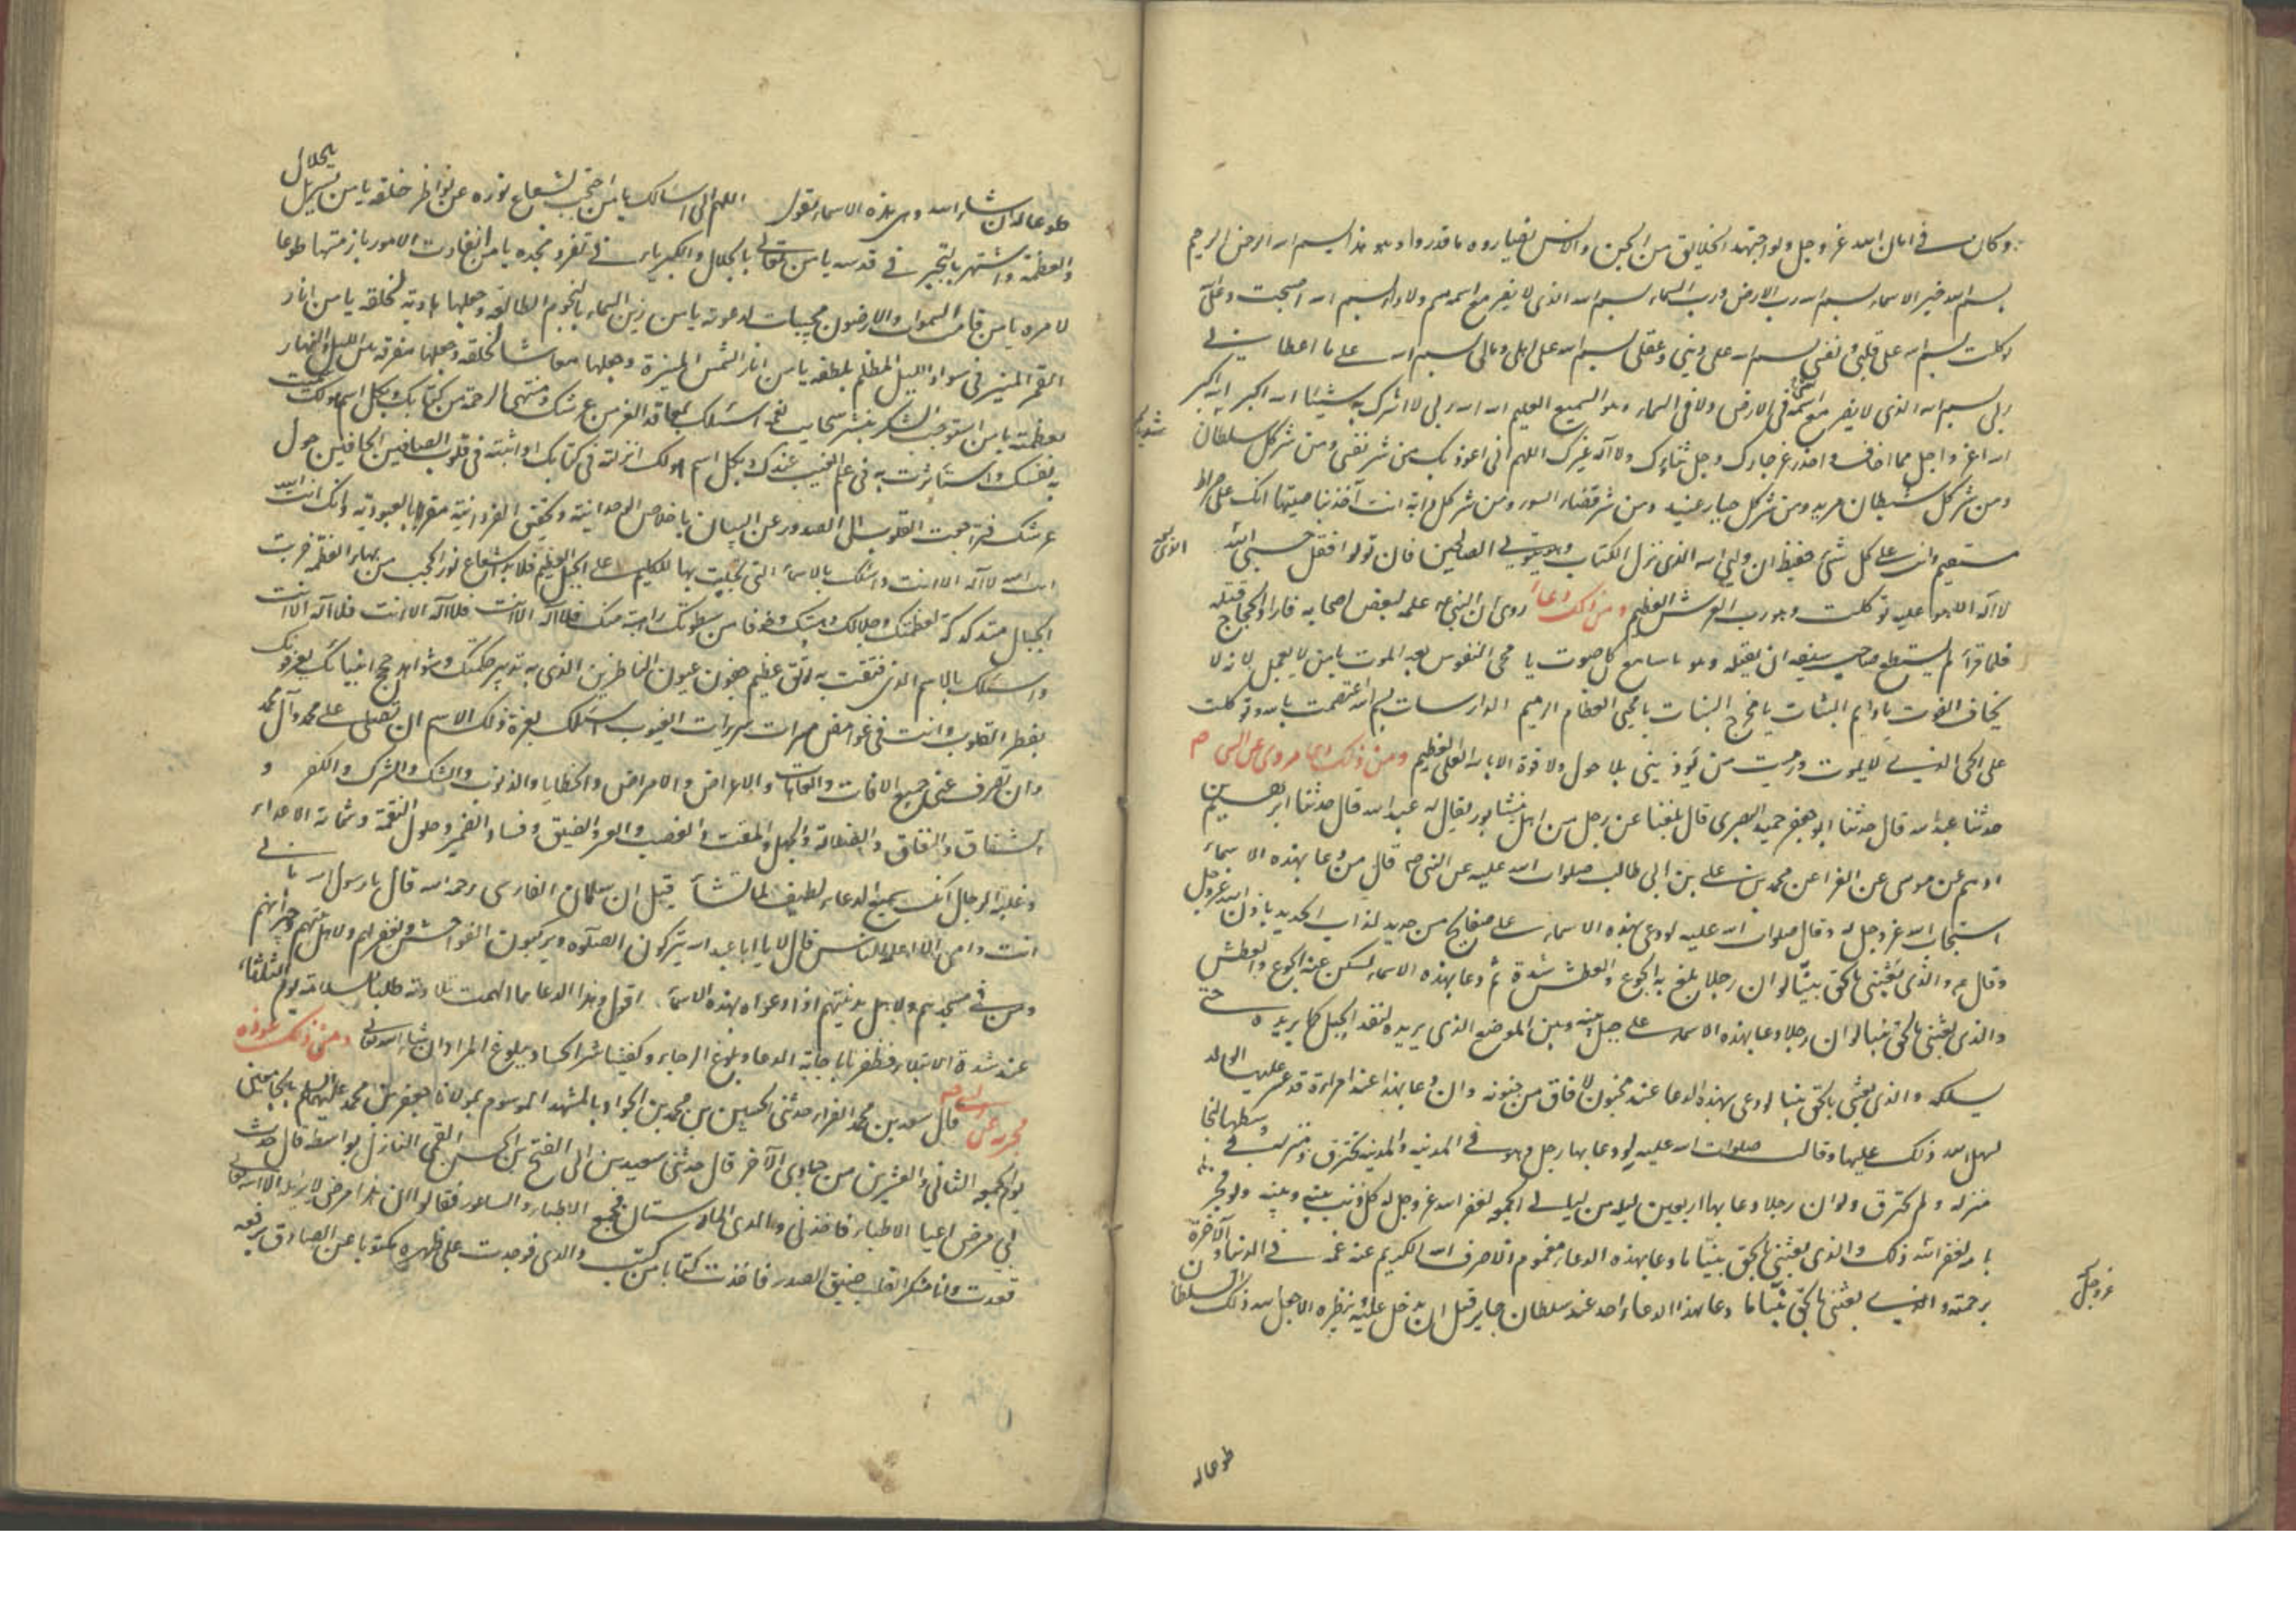 وكان في امان الله عز وجل ولو اجتهد الخلايق من الجن والانس ان يضاروه ما قدروا وهو هذا بسم الله الرحمن الرحيم
بسم الله خير الاسماء بسم الله رب الارض ورب السماء بسم الله الذى لا يضر مع اسمه سم ولا داء بسم الله اصبحت وعلى الله
توكلت بسم الله على قلبى ونفسى بسم الله على دينى وعقلى بسم الله على اهلى ومالى بسم الله على ما اعطانى
ربى بسم الله الذى لا يضر مع اسمه شئ فى الارض ولا فى السماء وهو السميع العليم الله الله ربى لا اشرك به شيئا الله اكبر الله اكبر
الله اعز واجل مما اخاف واحذر عز جارك وجل ثناؤك ولا اله غيرك اللهم انى اعوذ بك من شر نفسى ومن شر كل سلطان
ومن شر كل شيطان مريد ومن شر كل جبار عنيد ومن شر قضاء السوء ومن شر كل دابة انت آخذ بناصيتها انك على صراط
مستقيم وانت على كل شئ حفيظ ان وليى الله الذى نزل الكتاب وهو يتولى الصالحين فان تولوا فقل حسبى الله
لا اله الا هو عليه توكلت وهو رب العرش العظيم ومن ذلك دعاء روى ان النبى ص علمه لبعض اصحابه فاراد الحجاج قتله
فلما قرأه لم يستطع صاحب سيفه ان يقتله وهو يا سامع كل صوت يا محيى النفوس بعد الموت يا من لا يعجل لانه لا
يخاف الفوت يا دايم الثبات يا مخرج النبات يا محيى العظام الرميم الدارسات بسم الله اعتصمت بالله وتوكلت
على الحى الذى لا يموت ورميت من يؤذينى بلا حول ولا قوة الا بالله العلى العظيم ومن ذلك دعاء مروى عن النبى ص
حدثنا عبد الله قال حدثنا ابو جعفر حميد البصرى قال بلغنا عن رجل من اهل نيشابور يقال له عبد الله قال حدثنا ابرهيم بن
ادهم عن موسى عن الفرا عن محمد بن على بن ابى طالب صلوات الله عليه عن النبى ص قال من دعا بهذه الاسماء
استجاب الله عز وجل له وقال صلوات الله عليه لو دعى بهذه الاسماء على صفايح من حديد لذاب الحديد باذن الله عز وجل
وقال ص والذى بعثنى بالحق نبيا لو ان رجلا بلغ به الجوع والعطش شدة ثم دعا بهذه الاسماء لسكن عنه الجوع والعطش
والذى بعثنى بالحق نبيا لو ان رجلا دعا بهذه الاسماء على جبل بينه وبين الموضع الذى يريده لنفذ الجبل كما يريده حتى
يسلكه والذى بعثنى بالحق نبيا لو دعى بهذا الدعا عند مجنون لافاق من جنونه وان دعا بهذا عند امراءة قد عسر عليها الولد
لسهل الله ذلك عليها وقال صلوات الله عليه لو دعا بها رجل وهو فى المدينه والمدينه تحترق ومنزله فى وسطها لنجا
منزله ولم يحترق ولو ان رجلا دعا بها اربعين ليله من ليالى الجمعه لغفر الله عز وجل له كل ذنب بينه وبينه ولو فجر
بامه لغفر الله ذلك والذى بعثنى بالحق نبيا ما دعا بهذه الدعاء مغموم الا صرف الله الكريم عنه غمه فى الدنيا والآخرة
برحمته والذى بعثنى بالحق نبيا ما دعا بهذا الدعاء احد عند سلطان جاير قبل ان يدخل عليه وينظره الا جعل الله ذلك السلطان
عز وجل
طوعا له
طوعا له ان شاء الله وهى هذه الاسماء تقول اللهم انى اسالك يا من احتجب بشعاع نوره عن نواظر خلقه يا من تسربل بالجلال
والعظمة واشتهر بالتجبر فى قدسه يا من تعالى بالجلال والكبرياء فى تفرد مجده يا من انقادت الامور بازمتها طوعا
لامره يا من قامت السموات والارضون مجيبات لدعوته يا من زين السماء بالنجوم الطالعه وجعلها هادية لخلقه يا من انار
القمر المنير فى سواد الليل المظلم بلطفه يا من انار الشمس المنيرة وجعلها معاشا لخلقه وجعلها مفرقه بين الليل والنهار
بعظمته يا من استوجب الشكر بنشر سحايب نعمه اسئلك بمعاقد العز من عرشك ومنتهى الرحمة من كتابك وبكل اسم هو لك سميت
به نفسك واستأثرت به فى علم الغيب عندك وبكل اسم هو لك انزلته فى كتابك او اثبته فى قلوب الصافين الحافين حول
عرشك فتراجعت القلوب الى الصدور عن البيان باخلاص الوحدانية وتحقيق الفردانية مقرة بالعبودية وانك انت الله
انت الله لا اله الا انت واسئلك بالاسماء التى تجليت بها للكليم على الجبل العظيم فلما بدا شعاع نور الحجب من بهاء العظمة خرت
الجبال متدكدكة لعظمتك وجلالك وهيبتك وخوفا من سطوتك راهبة منك فلا اله الا انت فلا اله الا انت فلا اله الا انت
واسئلك بالاسم الذى فتقت به رتق عظيم جفون عيون الناظرين الذى به تدبير حكمتك وشواهد حجج انبيائك يعرفونك
بفطر القلوب وانت فى غوامض مسرات سريرات الغيوب اسئلك بعزة ذلك الاسم ان تصلى على محمد وآل محمد
وان تصرف عنى جميع الافات والعاهات والاعراض والامراض والخطايا والذنوب والشك والشرك والكفر و
الشقاق والنفاق والضلالة والجهل والمقت والغضب والعسر والضيق وفساد الضمير وحلول النقمة وشماتة الاعداء
وغلبة الرجال انك سميع الدعاء لطيف لما تشاء قيل ان سلمان الفارسى رحمه الله قال يا رسول الله بابى
انت وامى الا اعلمه للناس قال لا يا ابا عبد الله يتركون الصلوة ويركبون الفواحش ويغفر لهم ولاهل بيتهم وجيرانهم
ومن فى مسجدهم ولاهل مدينتهم اذا دعوا به بهذه الاسماء اقول وهذا الدعا مما الهمت تلاوته طلبا لسلامة يوم الثلثاء
عند شدة الابتلاء فظفرنا باجابة الدعا وبلوغ الرجاء وكفينا شر الحساد وبلوغ المراد ان شاء الله تعالى ومن ذلك عوذه
مجربه عن
قال سعد بن محمد الفراء حدثنى الحسين بن محمد بن الجواد بالمشهد الموسوم بمولانا جعفر بن محمد عليهما السلم
يوم الجمعه الثانى والعشرين من جمادى الآخر قال حدثنى سعيد بن ابى الفتح بن الحسن القمى النازل بواسط قال حدث
بى مرض اعيا الاطباء فاخذنى والدى الى المارستان فجمع الاطباء والساعور فقالوا ان هذا مرض لا يزيله الا الله تعالى
فعدت وانا منكسر القلب ضيق الصدر فاخذت كتابا من كتب والدى فوجدت على ظهره مكتوبا عن الصادق يرفعه